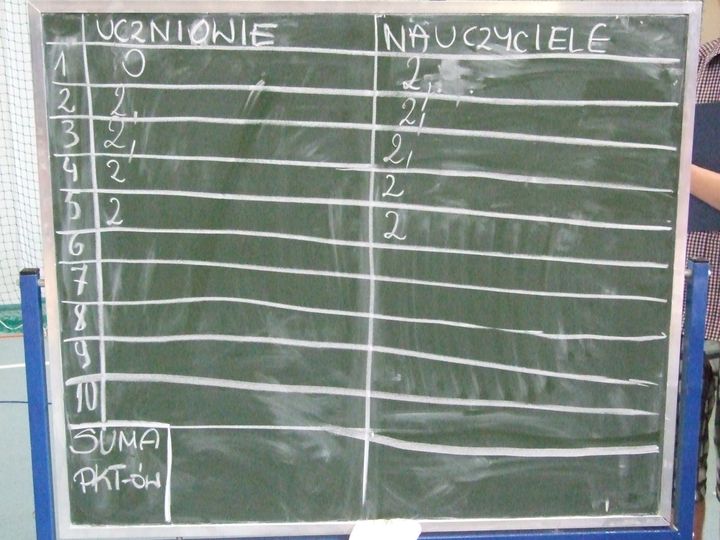 UCZNIOWIE NAUCZYCIELE
1 0 2,
2 2, 2,
3 2, 2,
4 2 2
5 2 2
6
7
8
9
10
SUMA
PKT-ÓW